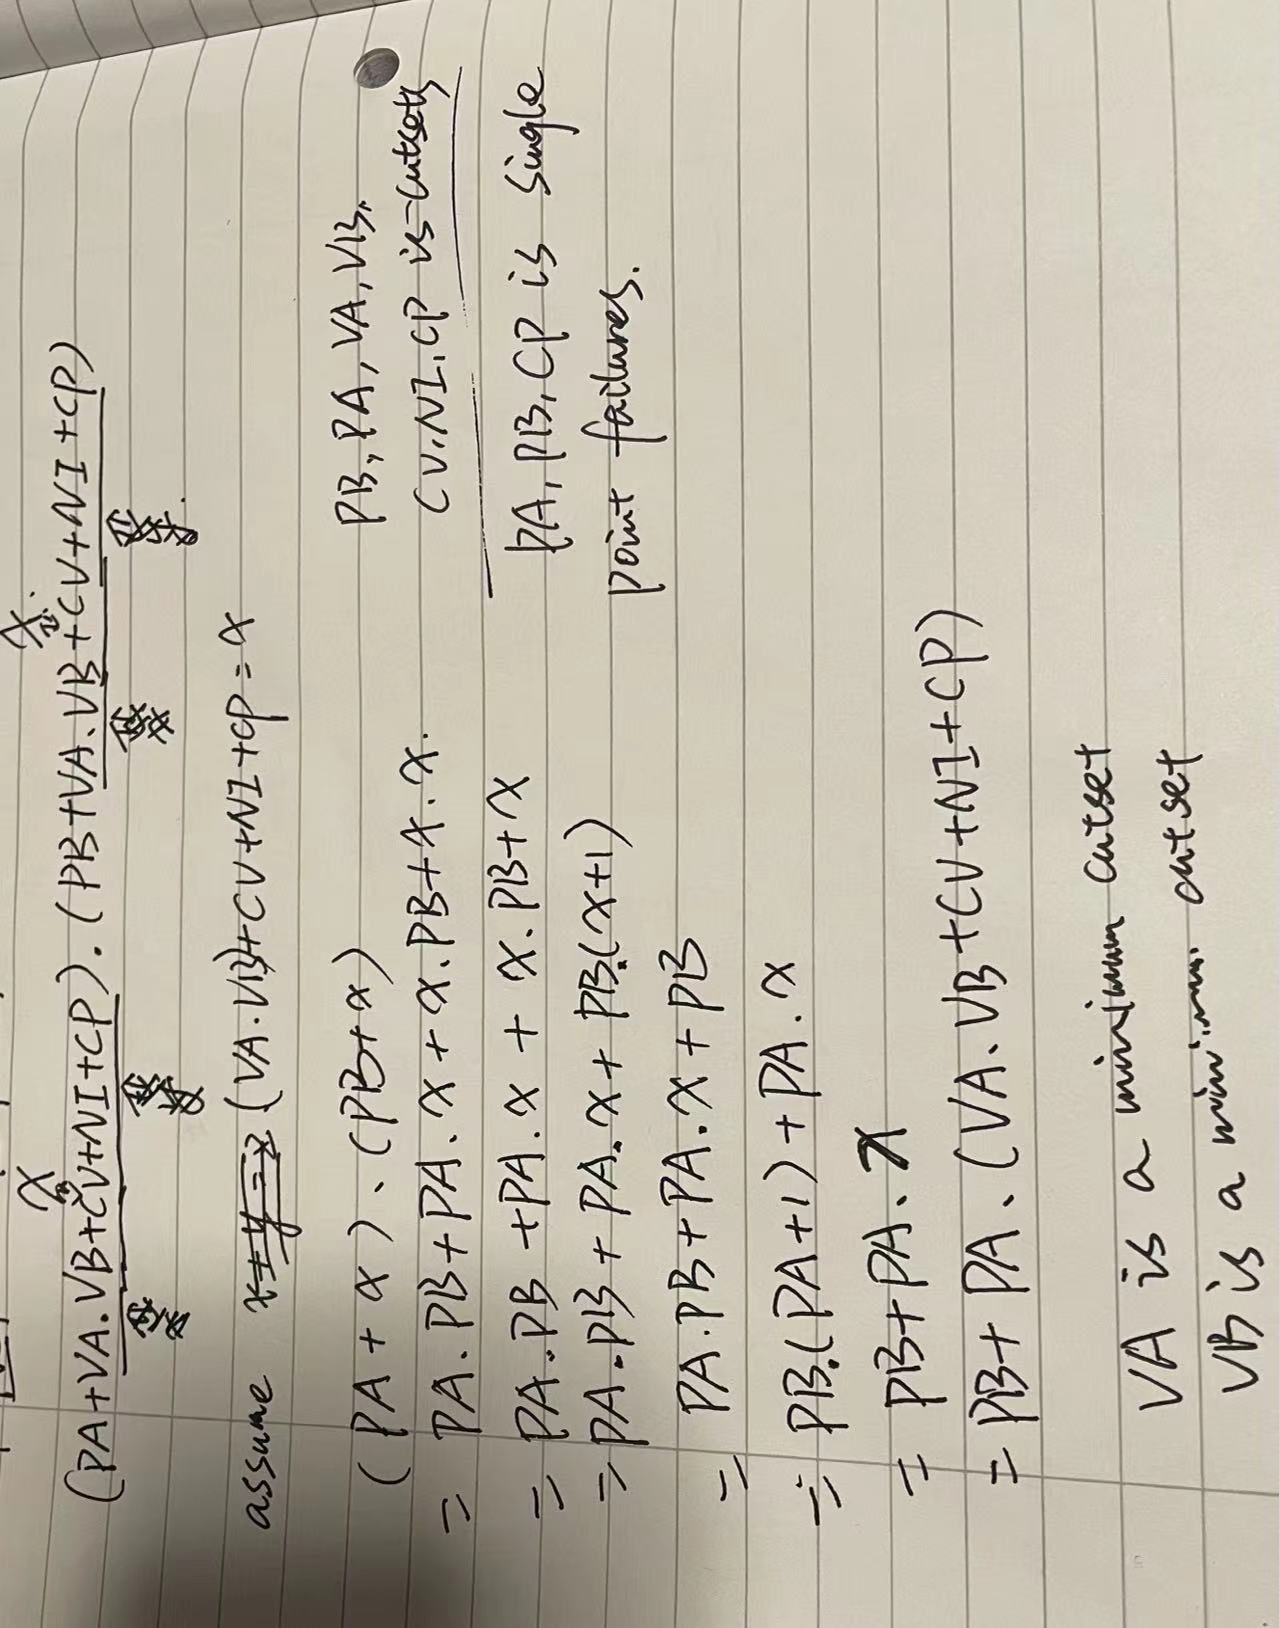 x x.
(PA+VA.VB+CV+NI+CP).(PB+VA.VB+CV+NI+CP)
assume x+y=z (VA.VB)+CV+NI+CP=x
(PA+x).(PB+x)
= PA.PB+PA.x+x.PB+x.x.
= PA.PB+PA.x+x.PB+x
= PA.PB+PA.x+PB.(x+1)
= PA.PB+PA.x+PB
= PB.(PA+1)+PA.x
= PB+PA.x
= PB+PA.(VA.VB+CV+NI+CP)
VA is a minimum cutset
VB is a minimum cutset
PB, PA, VA, VB,
CV, NI, CP is cutsets
PA, PB, CP is single
point failures.